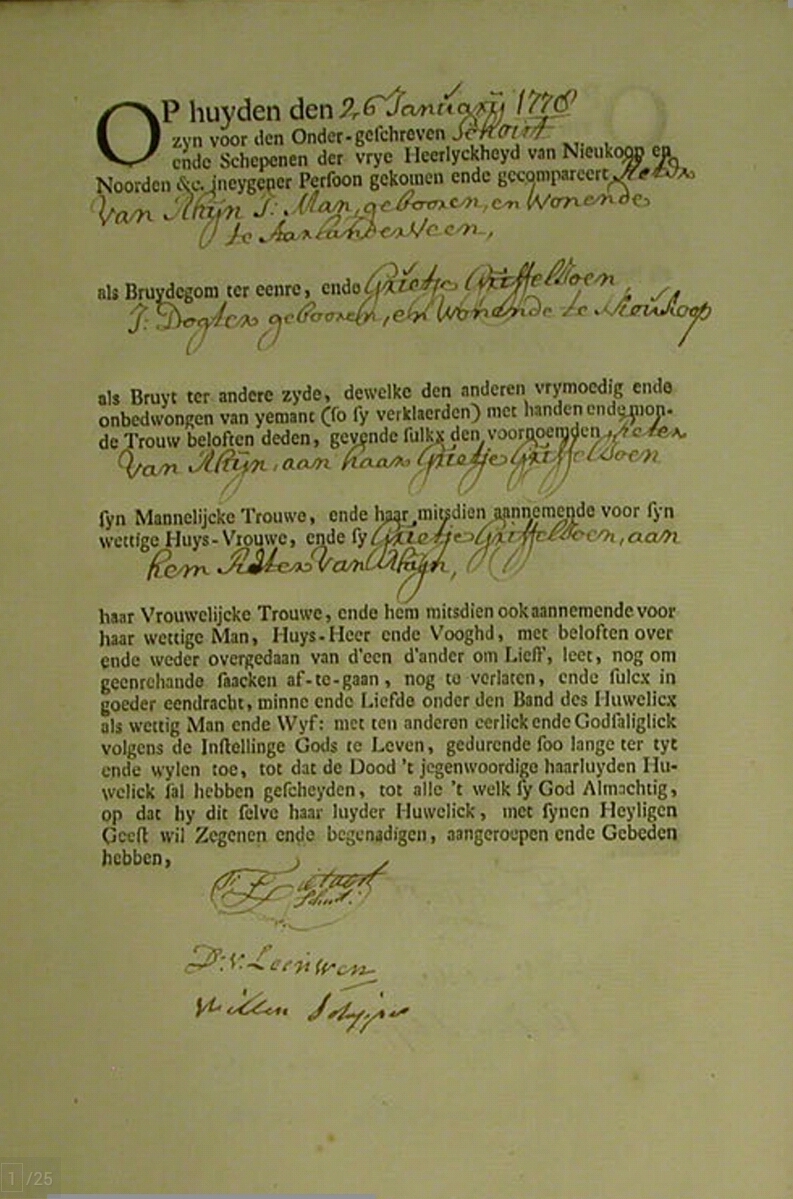 OP huyden den 26 Januarij 1778
zyn voor den Onder-geschreven Schout
ende Schepenen der vrye Heerlyckheyd van Nieukoop en
Noorden &c. jneygener Persoon gekomen ende gecompareert Pieter
Van Rhijn J: Man, gebooren, en Wonende
te Aarlanderveen,
als Bruydegom ter eenre, ende Grietje Griffelsoen
J: Dogter gebooren, en Wonende te Nieukoop
als Bruyt ter andere zyde, dewelke den anderen vrymoedig ende
onbedwongen van yemant (so sy verklaerden) met handen ende mon-
de Trouw beloften deden, gevende sulkx den voornoemden Pieter
Van Rhijn, aan haar Grietje Griffelsoen
syn Mannelijcke Trouwe, ende haar mitsdien aannemende voor syn
wettige Huys-Vrouwe, ende sy Grietje Griffelsoen, aan
hem Pieter Van Rhijn,
haar Vrouwelijcke Trouwe, ende hem mitsdien ook aannemende voor
haar wettige Man, Huys-Heer ende Vooghd, met beloften over
ende weder overgedaan van d'een d'ander om Lieff, leet, nog om
geenrehande saacken af-te-gaan, nog te verlaten, ende sulcx in
goeder eendracht, minne ende Liefde onder den Band des Huwelicx
als wettig Man ende Wyf: met ten anderen eerlick ende Godsaliglick
volgens de Instellinge Gods te Leven, gedurende soo lange ter tyt
ende wylen toe, tot dat de Dood 't jegenwoordige haarluyden Hu-
welick sal hebben gescheyden, tot alle 't welk sy God Almachtig,
op dat hy dit selve haar luyder Huwelick, met synen Heyligen
Geest wil Zegenen ende begenadigen, aangeroepen ende Gebeden
hebben,
Schout.
D: v: Leeuwen
Willem
1 /25